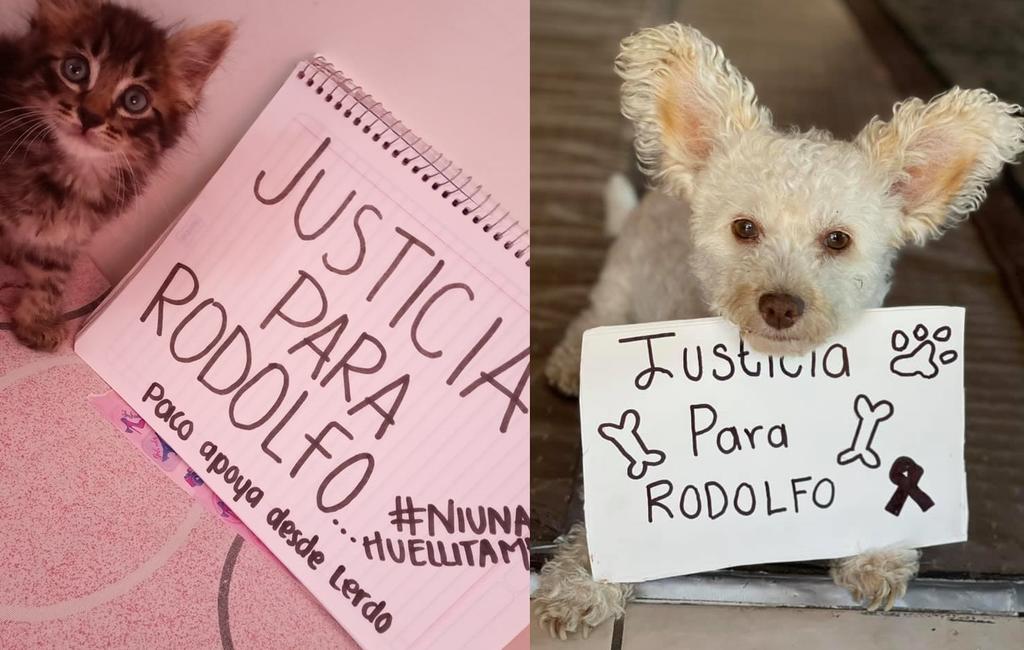 JUSTICIA
PARA
RODOLFO...
Paco apoya desde Lerdo
#NIUNA
HUELLITAM
Justicia
Para
RODOLFO